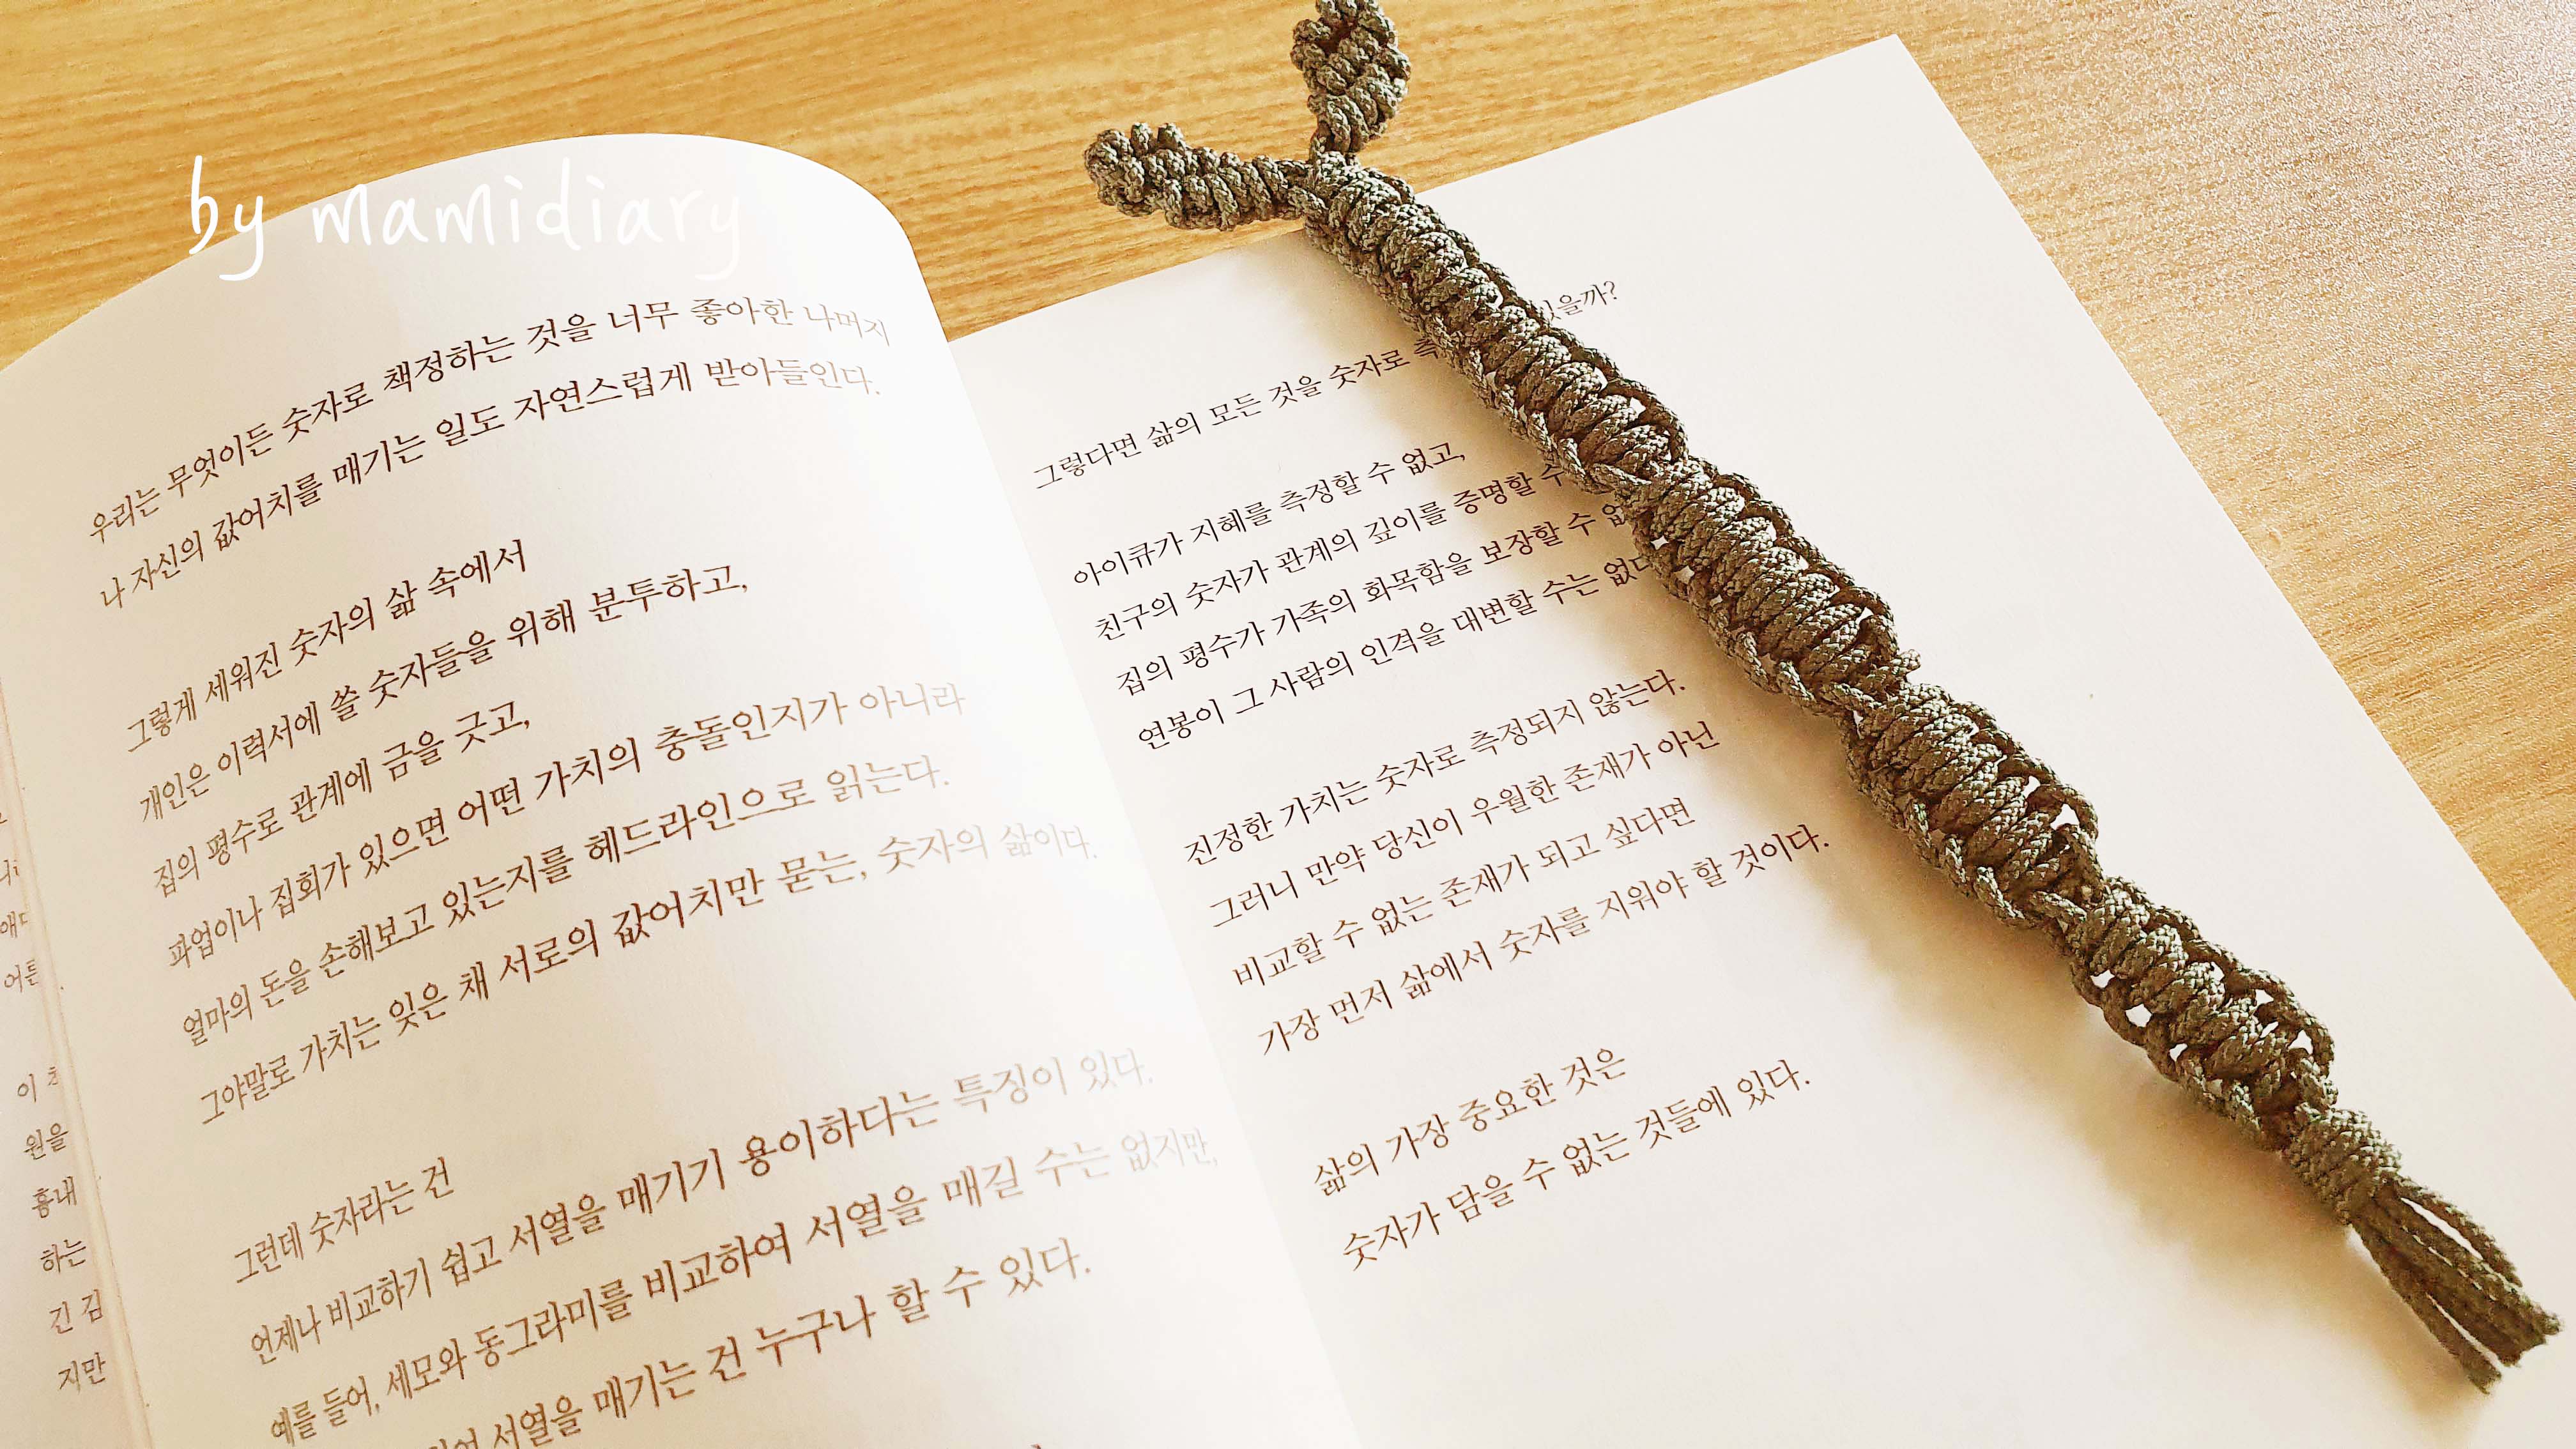 by mamidiary
우리는 무엇이든 숫자로 책정하는 것을 너무 좋아한 나머지
나 자신의 값어치를 매기는 일도 자연스럽게 받아들인다.
그렇게 세워진 숫자의 삶 속에서
개인은 이력서에 쓸 숫자들을 위해 분투하고,
집의 평수로 관계에 금을 긋고,
파업이나 집회가 있으면 어떤 가치의 충돌인지가 아니라
얼마의 돈을 손해보고 있는지를 헤드라인으로 읽는다.
그야말로 가치는 잊은 채 서로의 값어치만 묻는, 숫자의 삶이다.
그런데 숫자라는 건
언제나 비교하기 쉽고 서열을 매기기 용이하다는 특징이 있다.
예를 들어, 세모와 동그라미를 비교하여 서열을 매길 수는 없지만,
서열을 매기는 건 누구나 할 수 있다.
이
원을
흉내
하는
긴 김
지만
그렇다면 삶의 모든 것을 숫자로
있을까?
아이큐가 지혜를 측정할 수 없고,
친구의 숫자가 관계의 깊이를 증명할 수
집의 평수가 가족의 화목함을 보장할 수
연봉이 그 사람의 인격을 대변할 수는 없다
진정한 가치는 숫자로 측정되지 않는다.
그러니 만약 당신이 우월한 존재가 아닌
비교할 수 없는 존재가 되고 싶다면
가장 먼저 삶에서 숫자를 지워야 할 것이다.
삶의 가장 중요한 것은
숫자가 담을 수 없는 것들에 있다.